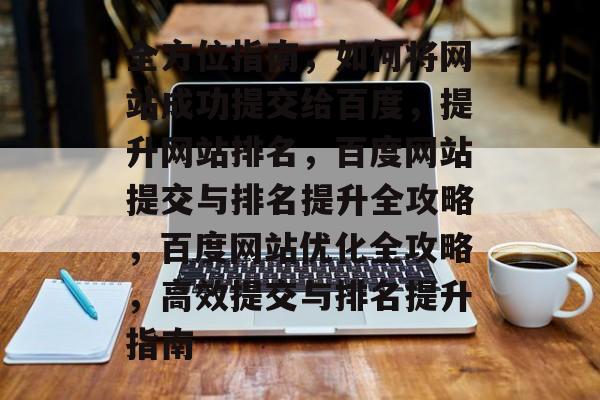 全方位指南，如何将网
站成功提交给百度，提
升网站排名，百度网站
提交与排名提升全攻略
，百度网站优化全攻略
，高效提交与排名提升
指南